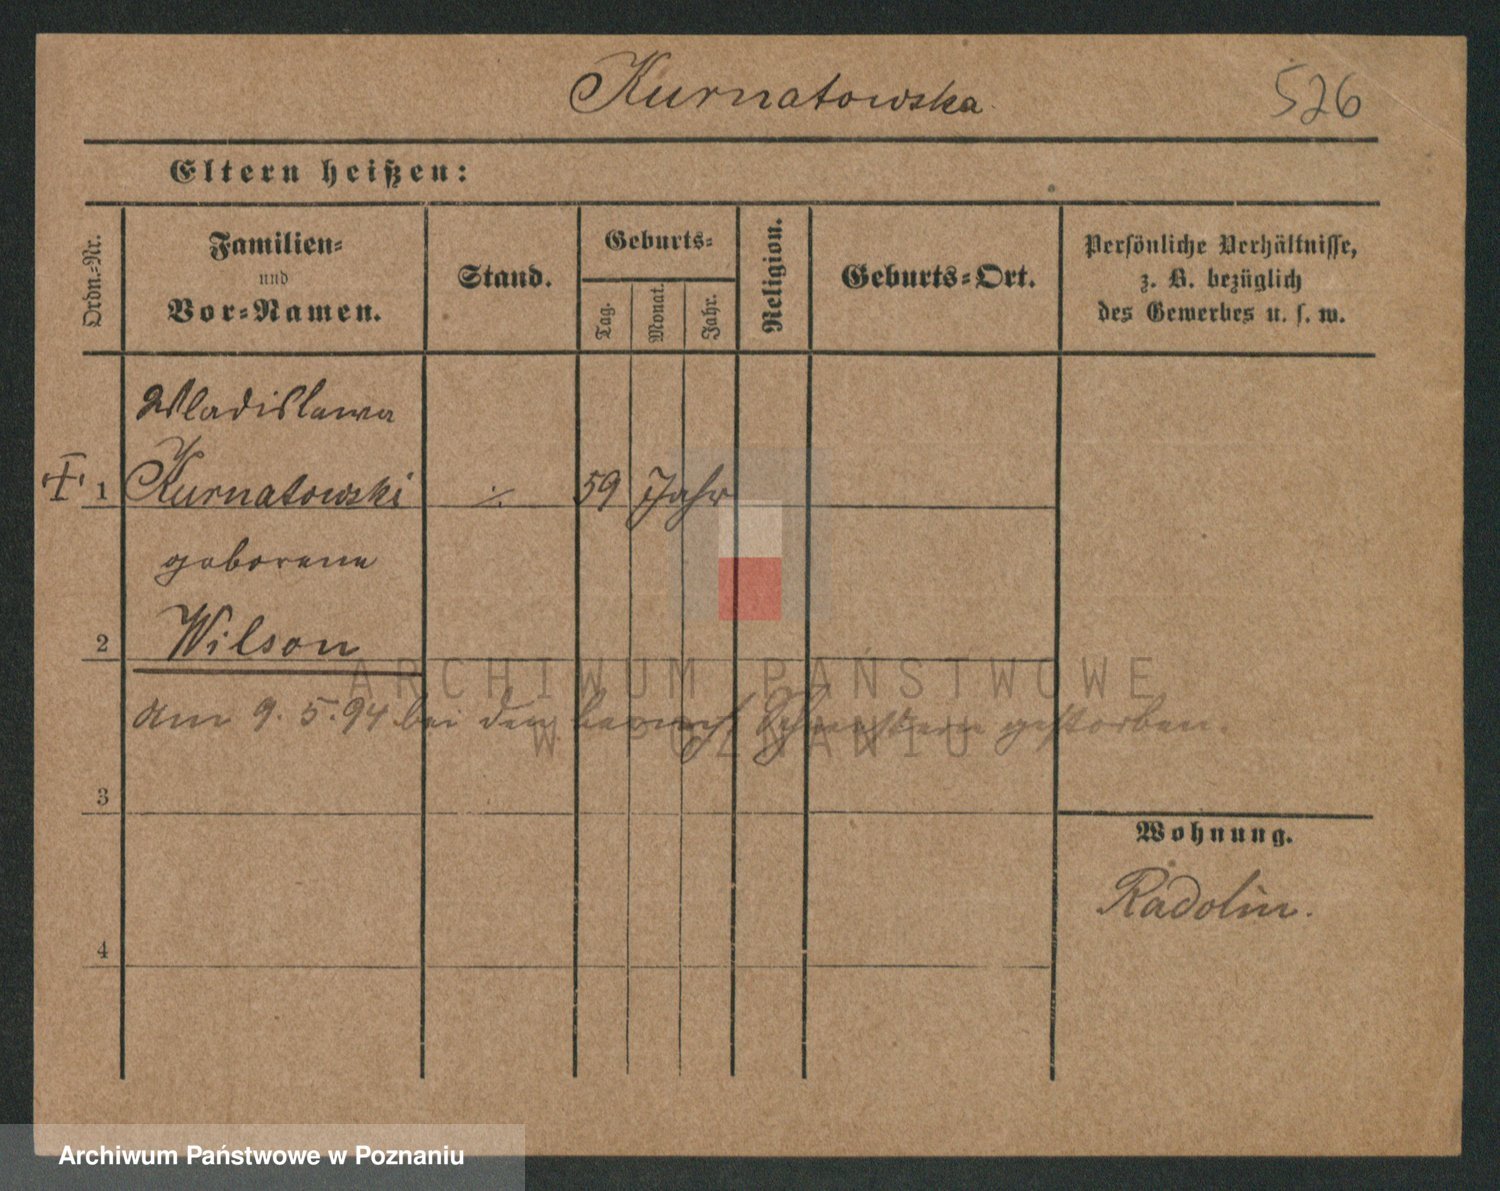 Kurnatowska.
526
Eltern heißen:
Ordn.=Nr.
Familien=
und
Vor=Namen.
Stand.
Geburts=
Tag.
Monat.
Jahr.
Religion.
Geburts=Ort.
Persönliche Verhältnisse,
z. B. bezüglich
des Gewerbes u. s. w.
Wladislawa
1 Kurnatowski ./. 59 Jahr
geborene
2 Wilson
am 9. 5. 94 bei den barmh. Schwestern gestorben.
3
Wohnung.
Radolin.
4
ARCHIWUM PAŃSTWOWE
W POZNANIU
Archiwum Państwowe w Poznaniu